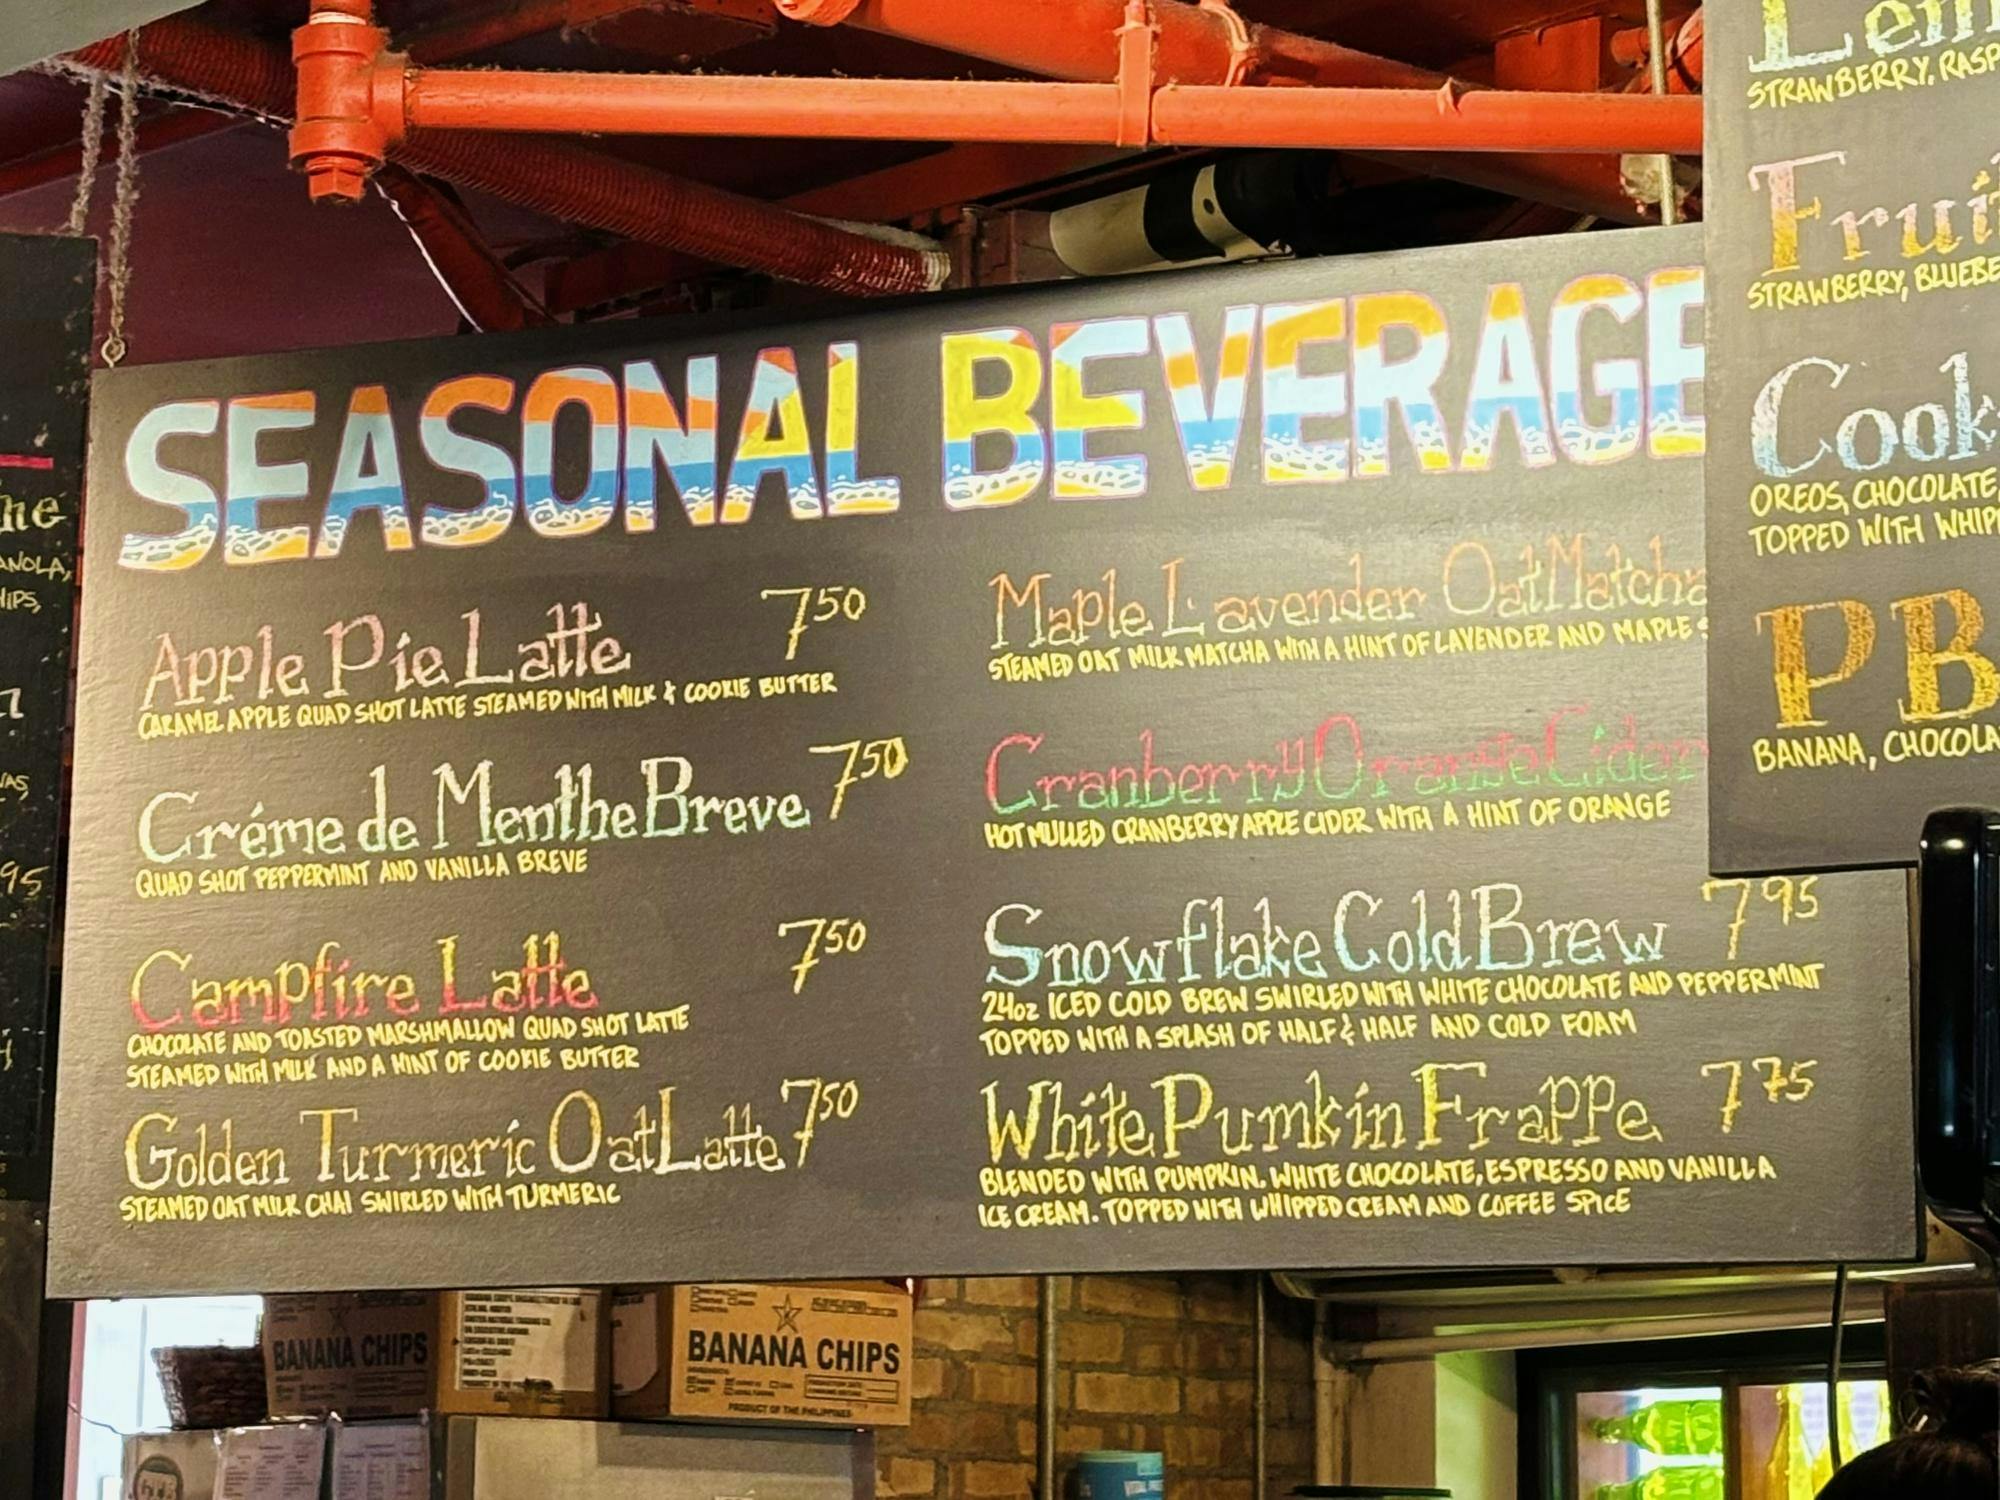 SEASONAL BEVERAGE
Apple Pie Latte 7 50
CARAMEL APPLE QUAD SHOT LATTE STEAMED WITH MILK & COOKIE BUTTER
Créme de Menthe Breve 7 50
QUAD SHOT PEPPERMINT AND VANILLA BREVE
Campfire Latte 7 50
CHOCOLATE AND TOASTED MARSHMALLOW QUAD SHOT LATTE
STEAMED WITH MILK AND A HINT OF COOKIE BUTTER
Golden Turmeric Oat Latte 7 50
STEAMED OAT MILK CHAI SWIRLED WITH TURMERIC
Maple Lavender Oat Matcha
STEAMED OAT MILK MATCHA WITH A HINT OF LAVENDER AND MAPLE
Cranberry Orange Cider
HOT MULLED CRANBERRY APPLE CIDER WITH A HINT OF ORANGE
Snowflake Cold Brew 7 95
24oz ICED COLD BREW SWIRLED WITH WHITE CHOCOLATE AND PEPPERMINT
TOPPED WITH A SPLASH OF HALF & HALF AND COLD FOAM
White Pumkin Frappe 7 75
BLENDED WITH PUMPKIN. WHITE CHOCOLATE, ESPRESSO AND VANILLA
ICE CREAM. TOPPED WITH WHIPPED CREAM AND COFFEE SPICE
Lem
STRAWBERRY, RASP
Fruit
STRAWBERRY, BLUEBE
Cook
OREOS, CHOCOLATE,
TOPPED WITH WHIPP
PB
BANANA, CHOCOLA
he
ANOLA,
HIPS,
95
BANANA CHIPS
BANANA CHIPS
PRODUCT OF THE PHILIPPINES